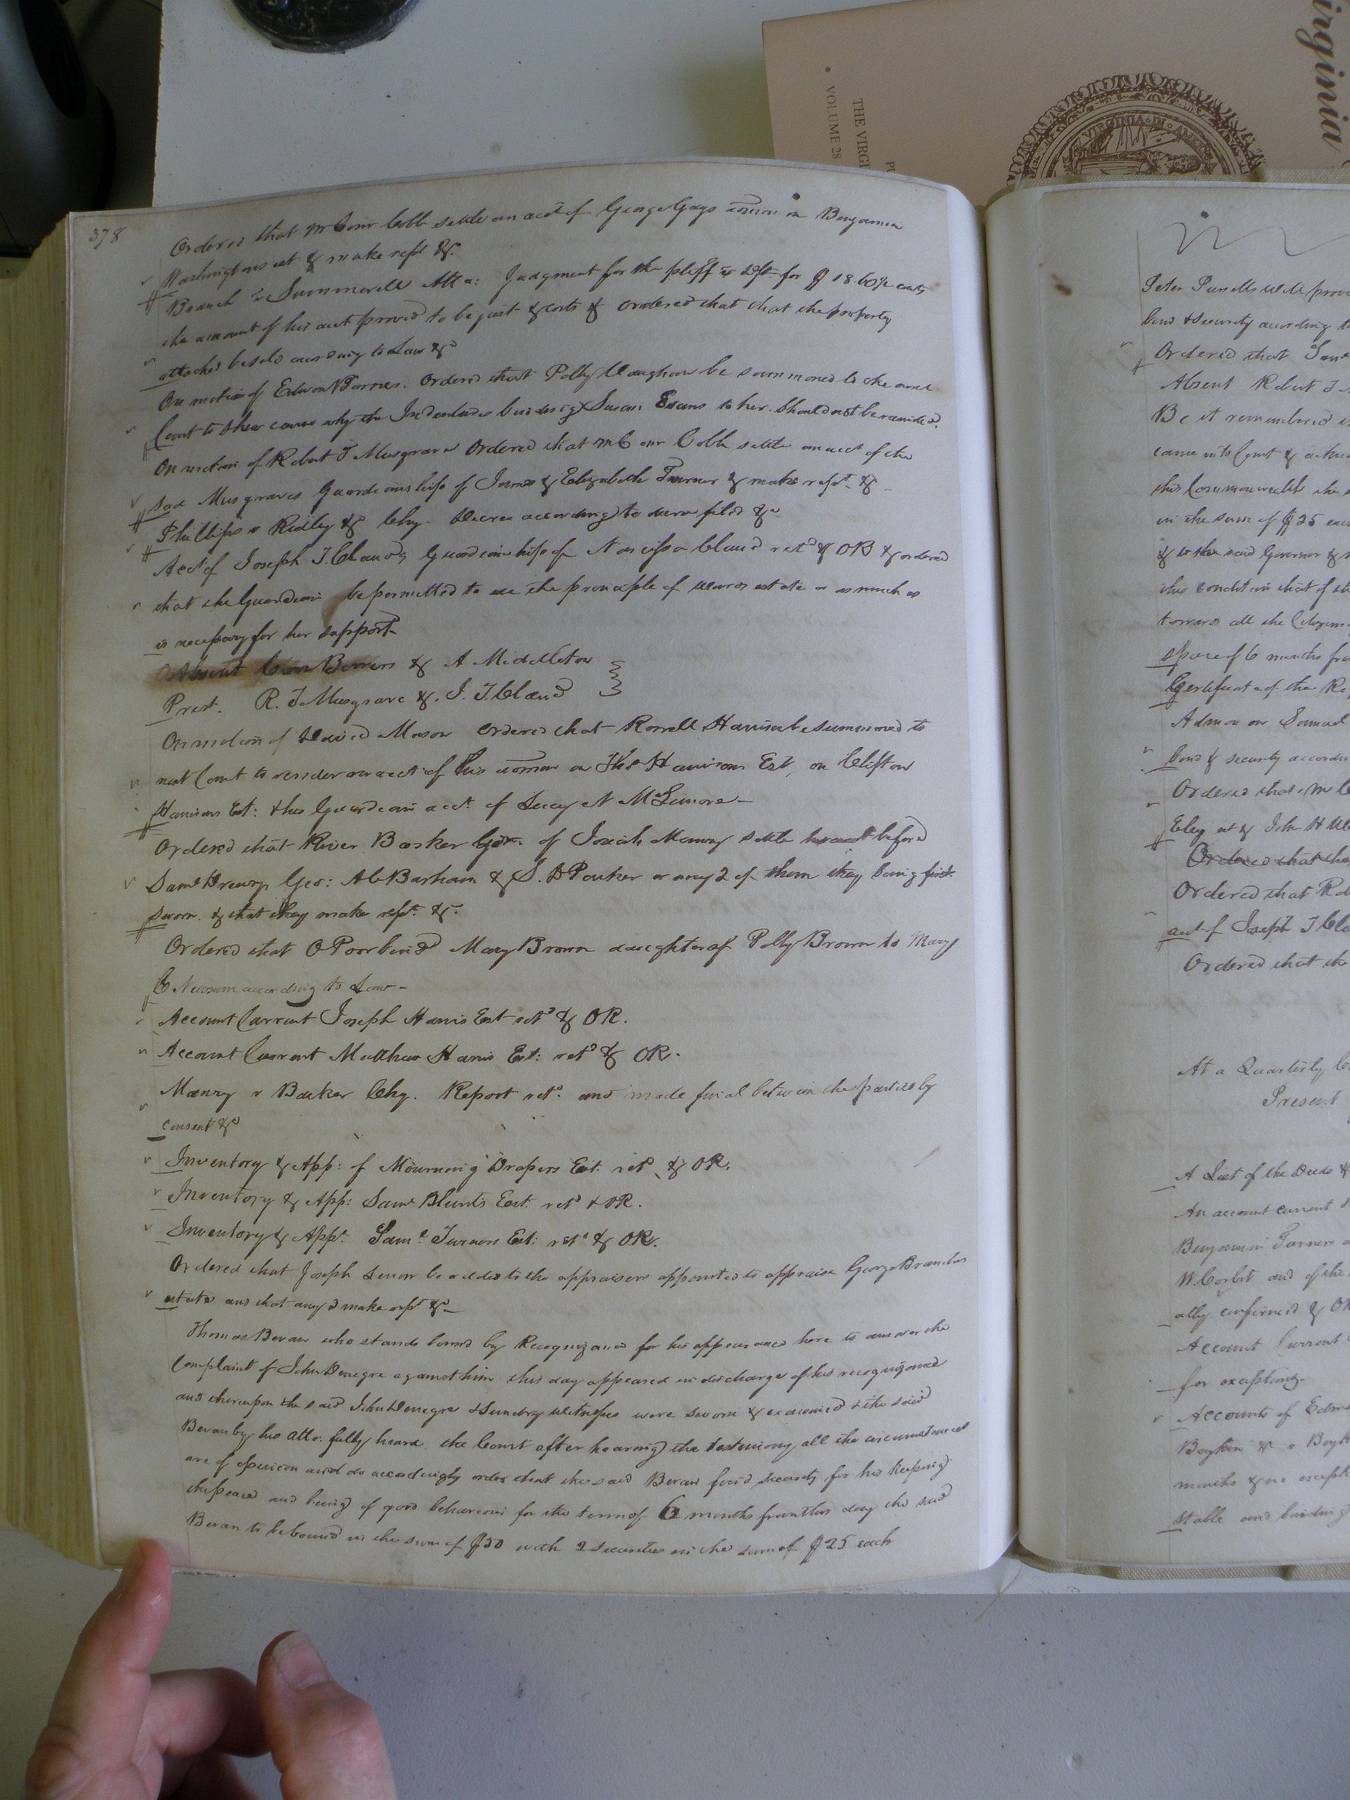 irginia
THE VIRGI
VOLUME 28
VIRGINIA
378
Ordered that Mr Comr Cobb settle an acct of George Grays admon on Benjamin
Washingtons est & make rept &c
Branch v Summerell Atta: Judgment for the pltff vs deft for $ 18.60½ cents
the amount of his acct proved to be just & costs & ordered that that the property
attached be sold according to Law &c
On motion of Edwin Barnes. Ordered that Polly Vaughan be summoned to the next
Court to shew cause why the Indentures binding Susan Evans to her should not be
On motion of Robert T Musgrave Ordered that Mr Comr Cobb settle an acct of the
said Musgraves Guardianship of James & Elizabeth Turner & make rept &c
Phillips v Ridley & Chy. Decree according to decree filed &c
Acct of Joseph T. Claud's Guardianship of Narcissa Claud retd & OR & ordered
that the Guardian be permitted to use the principle of wards estate or as much as
is necessary for her support
Absent & A Middleton
Prest. R. T Musgrave & J. T Claud
On motion of David Mason ordered that Korrell Harrison be summoned to
next Court to render an acct of his admon on Thos Harrisons Est, on Clifton
Harrisons Est: & his Guardian acct. of Lucy N McLemore
Ordered that River Barker Gdn. of Josiah Manry settle before
Saml Drewry Geo: A C Barham & S. B Parker or any 2 of them they being first
sworn & that they make rept. &c.
Ordered that O Poor bind Mary Brown daughter of Polly Brown to Mary
E Newsom according to Law
Account Current Joseph Harris Est retd & OR.
Account Current Matthew Harris Est: retd & OR.
Manry v Barker Chy. Report retd. and made final between the parties by
consent &c
Inventory & App: of Mourning Drapers Est. retd & OR.
Inventory & App: Saml Blunts Est. retd & OR.
Inventory & Appt. Saml Turners Est: retd & OR.
Ordered that Joseph Lenow be added to the appraisers appointed to appraise George Branches
estate and that any 3 make rept &c
Thomas Bevan who stands bound by Recognizance for his appearance here to answer the
Complaint of John Denegre against him this day appeared in discharge of his recognizance
and thereupon the said John Denegre & Sundry witnesses were sworn & examined & the said
Bevan by his atto. fully heard. the Court after hearing the testimony, all the circumstances
are of opinion and do accordingly order that the said Bevan find security for his keeping
the peace and being of good behaviour for the term of 6 months from this day the said
Bevan to be bound in the sum of $50 with 2 securities in the sum of $25 each
Peter Pursells will prov
bond & security according t
Ordered that Jam
Absent Robert T
Be it remembered
came into Court &
this Commonwealth the
in the sum of $25 eac
& to the said Governor &
the condition that if th
towards all the Citizens
space of 6 months fr
Certificate of the
Admon on Samuel
bond & security accordin
Ordered that Mr C
Eley
Ordered that the
Ordered that Ro
acct of Joseph T Cla
Ordered that the
At a Quarterly C
Present
A List of the Deeds &
An account current
Benjamin Turners
W. Corbit and of the
ally confirmed & OR
Account Current
for exceptions
Accounts of Edm
Boykin & v Boyk
months & no except
stable and binding